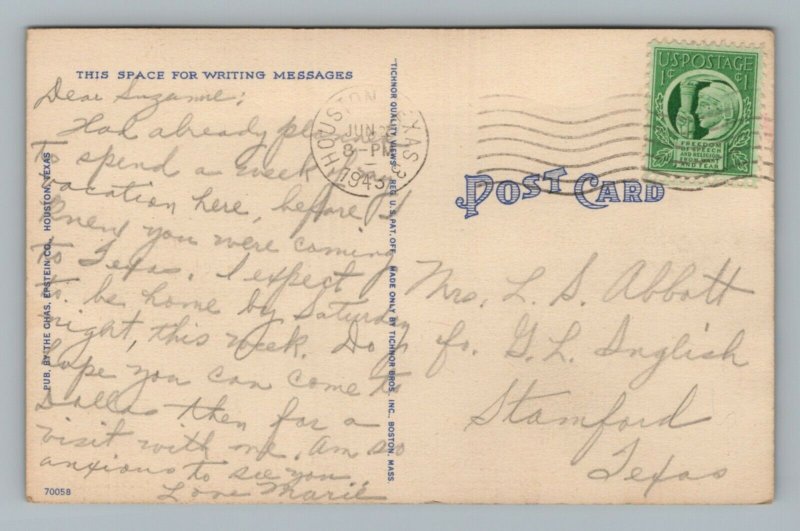 THIS SPACE FOR WRITING MESSAGES
Dear Suzanne;
Had already planned
to spend a week of my
vacation here, before I
knew you were coming
to Texas. I expect
to be home by Saturday
night, this week. Do
hope you can come to
Dallas then for a
visit with me. Am so
anxious to see you.
Love Marie
70058
PUB. BY THE CHAS. EPSTEIN CO., HOUSTON, TEXAS
"TICHNOR QUALITY VIEWS," REG. U.S. PAT. OFF. MADE ONLY BY TICHNOR BROS. INC., BOSTON, MASS.
HOUSTON, TEXAS 3
JUN
8-PM
1943
U.S. POSTAGE
1¢ ¢1
FREEDOM
OF SPEECH
AND RELIGION
FROM WANT
AND FEAR
POST CARD
Mrs. L. S. Abbott
℅ G. L. English
Stamford
Texas